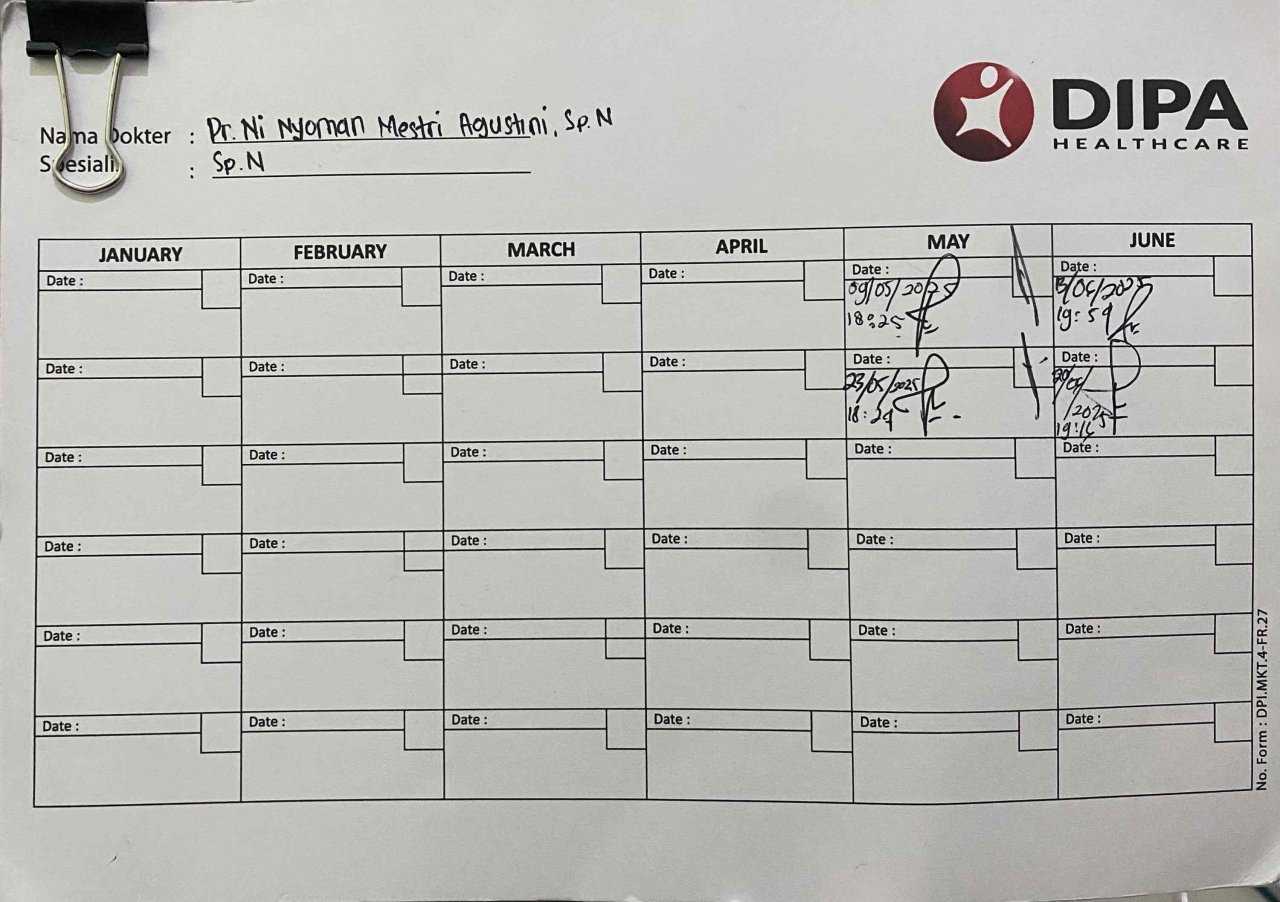 DIPA
HEALTHCARE
Nama Dokter : Dr. Ni Nyoman Mestri Agustini, Sp.N
Spesiali : Sp.N
JANUARY FEBRUARY MARCH APRIL MAY JUNE
Date : Date : Date : Date : Date : Date :
09/05/2025 /06/2025
18:25 19:59
Date : Date : Date : Date : Date : Date :
23/05/2025 20/06/
18:29 /2025
19:16
Date : Date : Date : Date : Date : Date :
Date : Date : Date : Date : Date : Date :
Date : Date : Date : Date : Date : Date :
Date : Date : Date : Date : Date : Date :
No. Form : DPI.MKT.4-FR.27